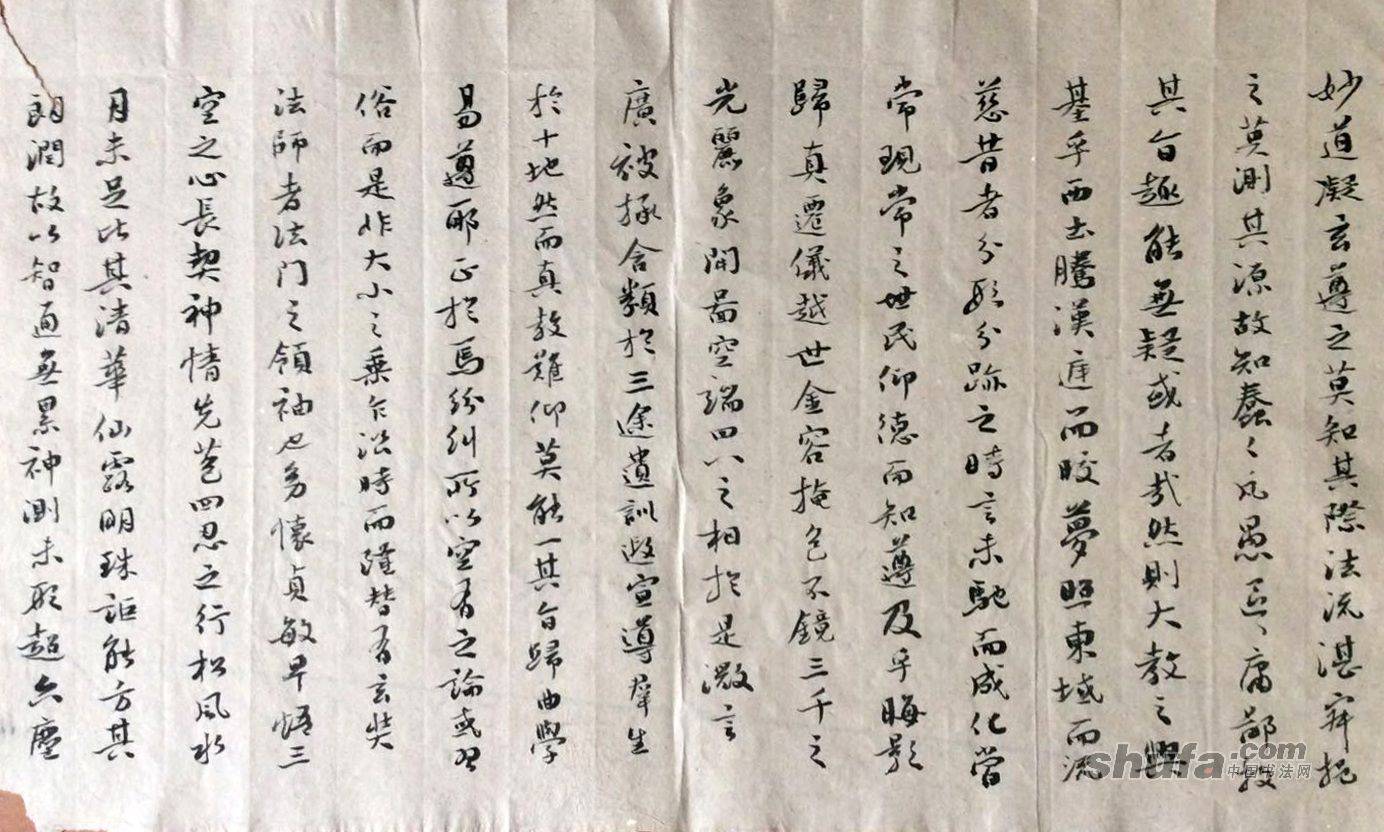 妙道凝玄遵之莫知其際法流湛寂挹
之莫測其源故知蠢々凡愚區々庸鄙投
其旨趣能無疑或者哉然則大教之興
基乎西土騰漢庭而晈夢照東域而流
慈昔者分形分跡之時言未馳而成化當
常現常之世民仰德而知遵及乎晦影
歸真遷儀越世金容掩色不鏡三千之
光麗象開圖空端四八之相於是微言
廣被拯含類於三途遺訓遐宣導群生
於十地然而真教難仰莫能一其旨歸曲學
易遵耶正於焉紛糾所以空有之論或習
俗而是非大小之乘乍沿時而隆替有玄奘
法師者法门之領袖也幼懷貞敏早悟三
空之心長契神情先苞四忍之行松風水
月未足比其清華仙露明珠詎能方其
朗潤故以智通無累神測未形超六塵
shufa.com
中国书法网